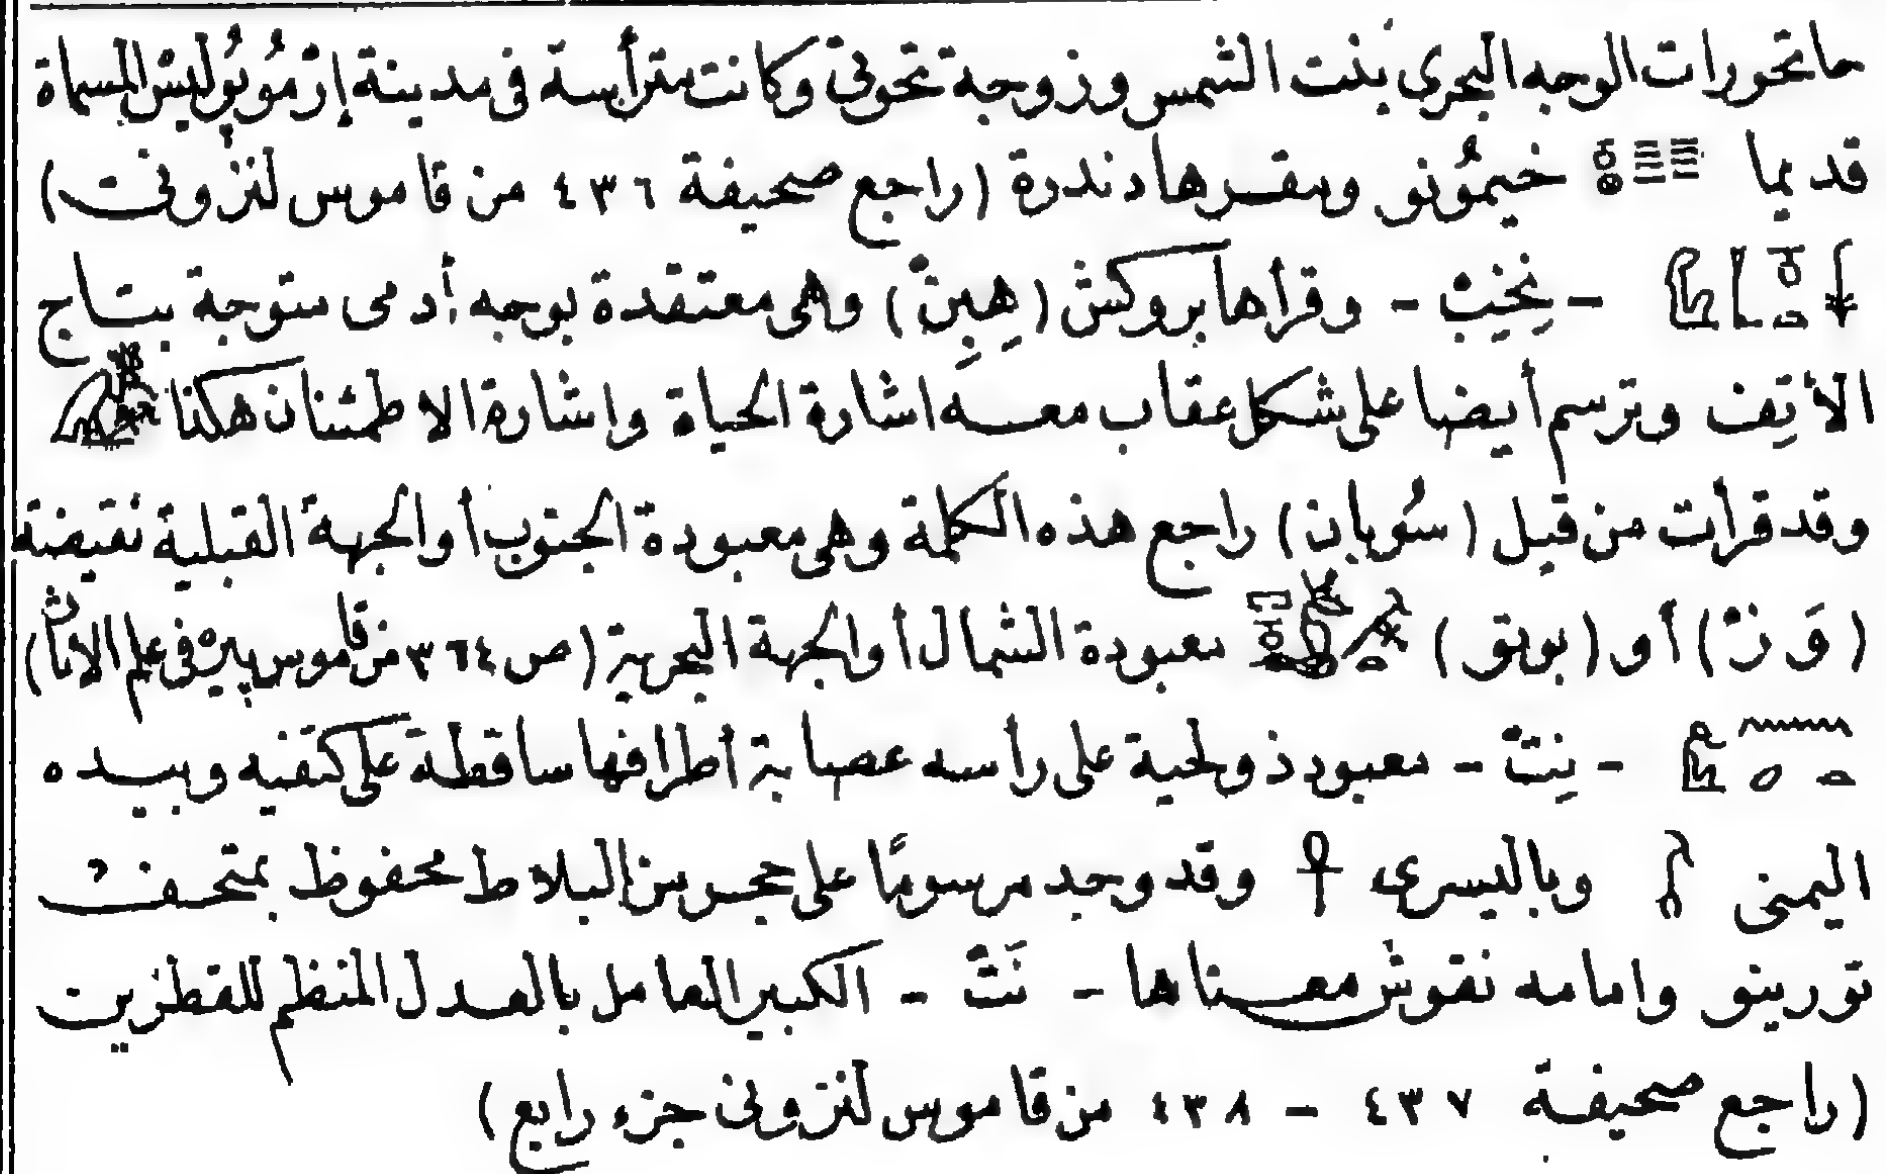 حاتحورات الوجه البحرى بنت الشمس وزوجة تحوتى وكانت مترأسة فى مدينة إِرْمُوبُولِيسْ المسماة
قديما 𓐁 خيمُونو ومقرها دندرة (راجع صحيفة ٤٣٦ من قاموس لنزونى)
– نِخِيبْ – وقرأها بروكش (هِبِنْ) وهى معتقدة بوجه أدمى متوجة بتاج
الأتِف وترسم أيضا على شكل عقاب معه اشارة الحياة واشارة الاطمئنان هكذا
وقد قرأت من قبل (سُوبان) راجع هذه الكلمة وهى معبودة الجنوب أو الجهة القبلية نقيضة
(وَزْ) أو (بوتو) معبودة الشمال أو الجهة البحرية (ص ٣٦٤ من قاموس پيِرّه فى علم الاثار)
– نِتّ – معبود ذو لحية على رأسه عصابة أطرافها ساقطة على كتفيه وبيده
اليمنى 𓋾 وباليسرى 𓋹 وقد وجد مرسومًا على حجر من البلاط محفوظ بمتحف
تورينو وامامه نقوش معناها – نَتّ – الكبير العامل بالعدل المنظم للقطرين
(راجع صحيفة ٤٣٧ – ٤٣٨ من قاموس لنزونى جزء رابع)